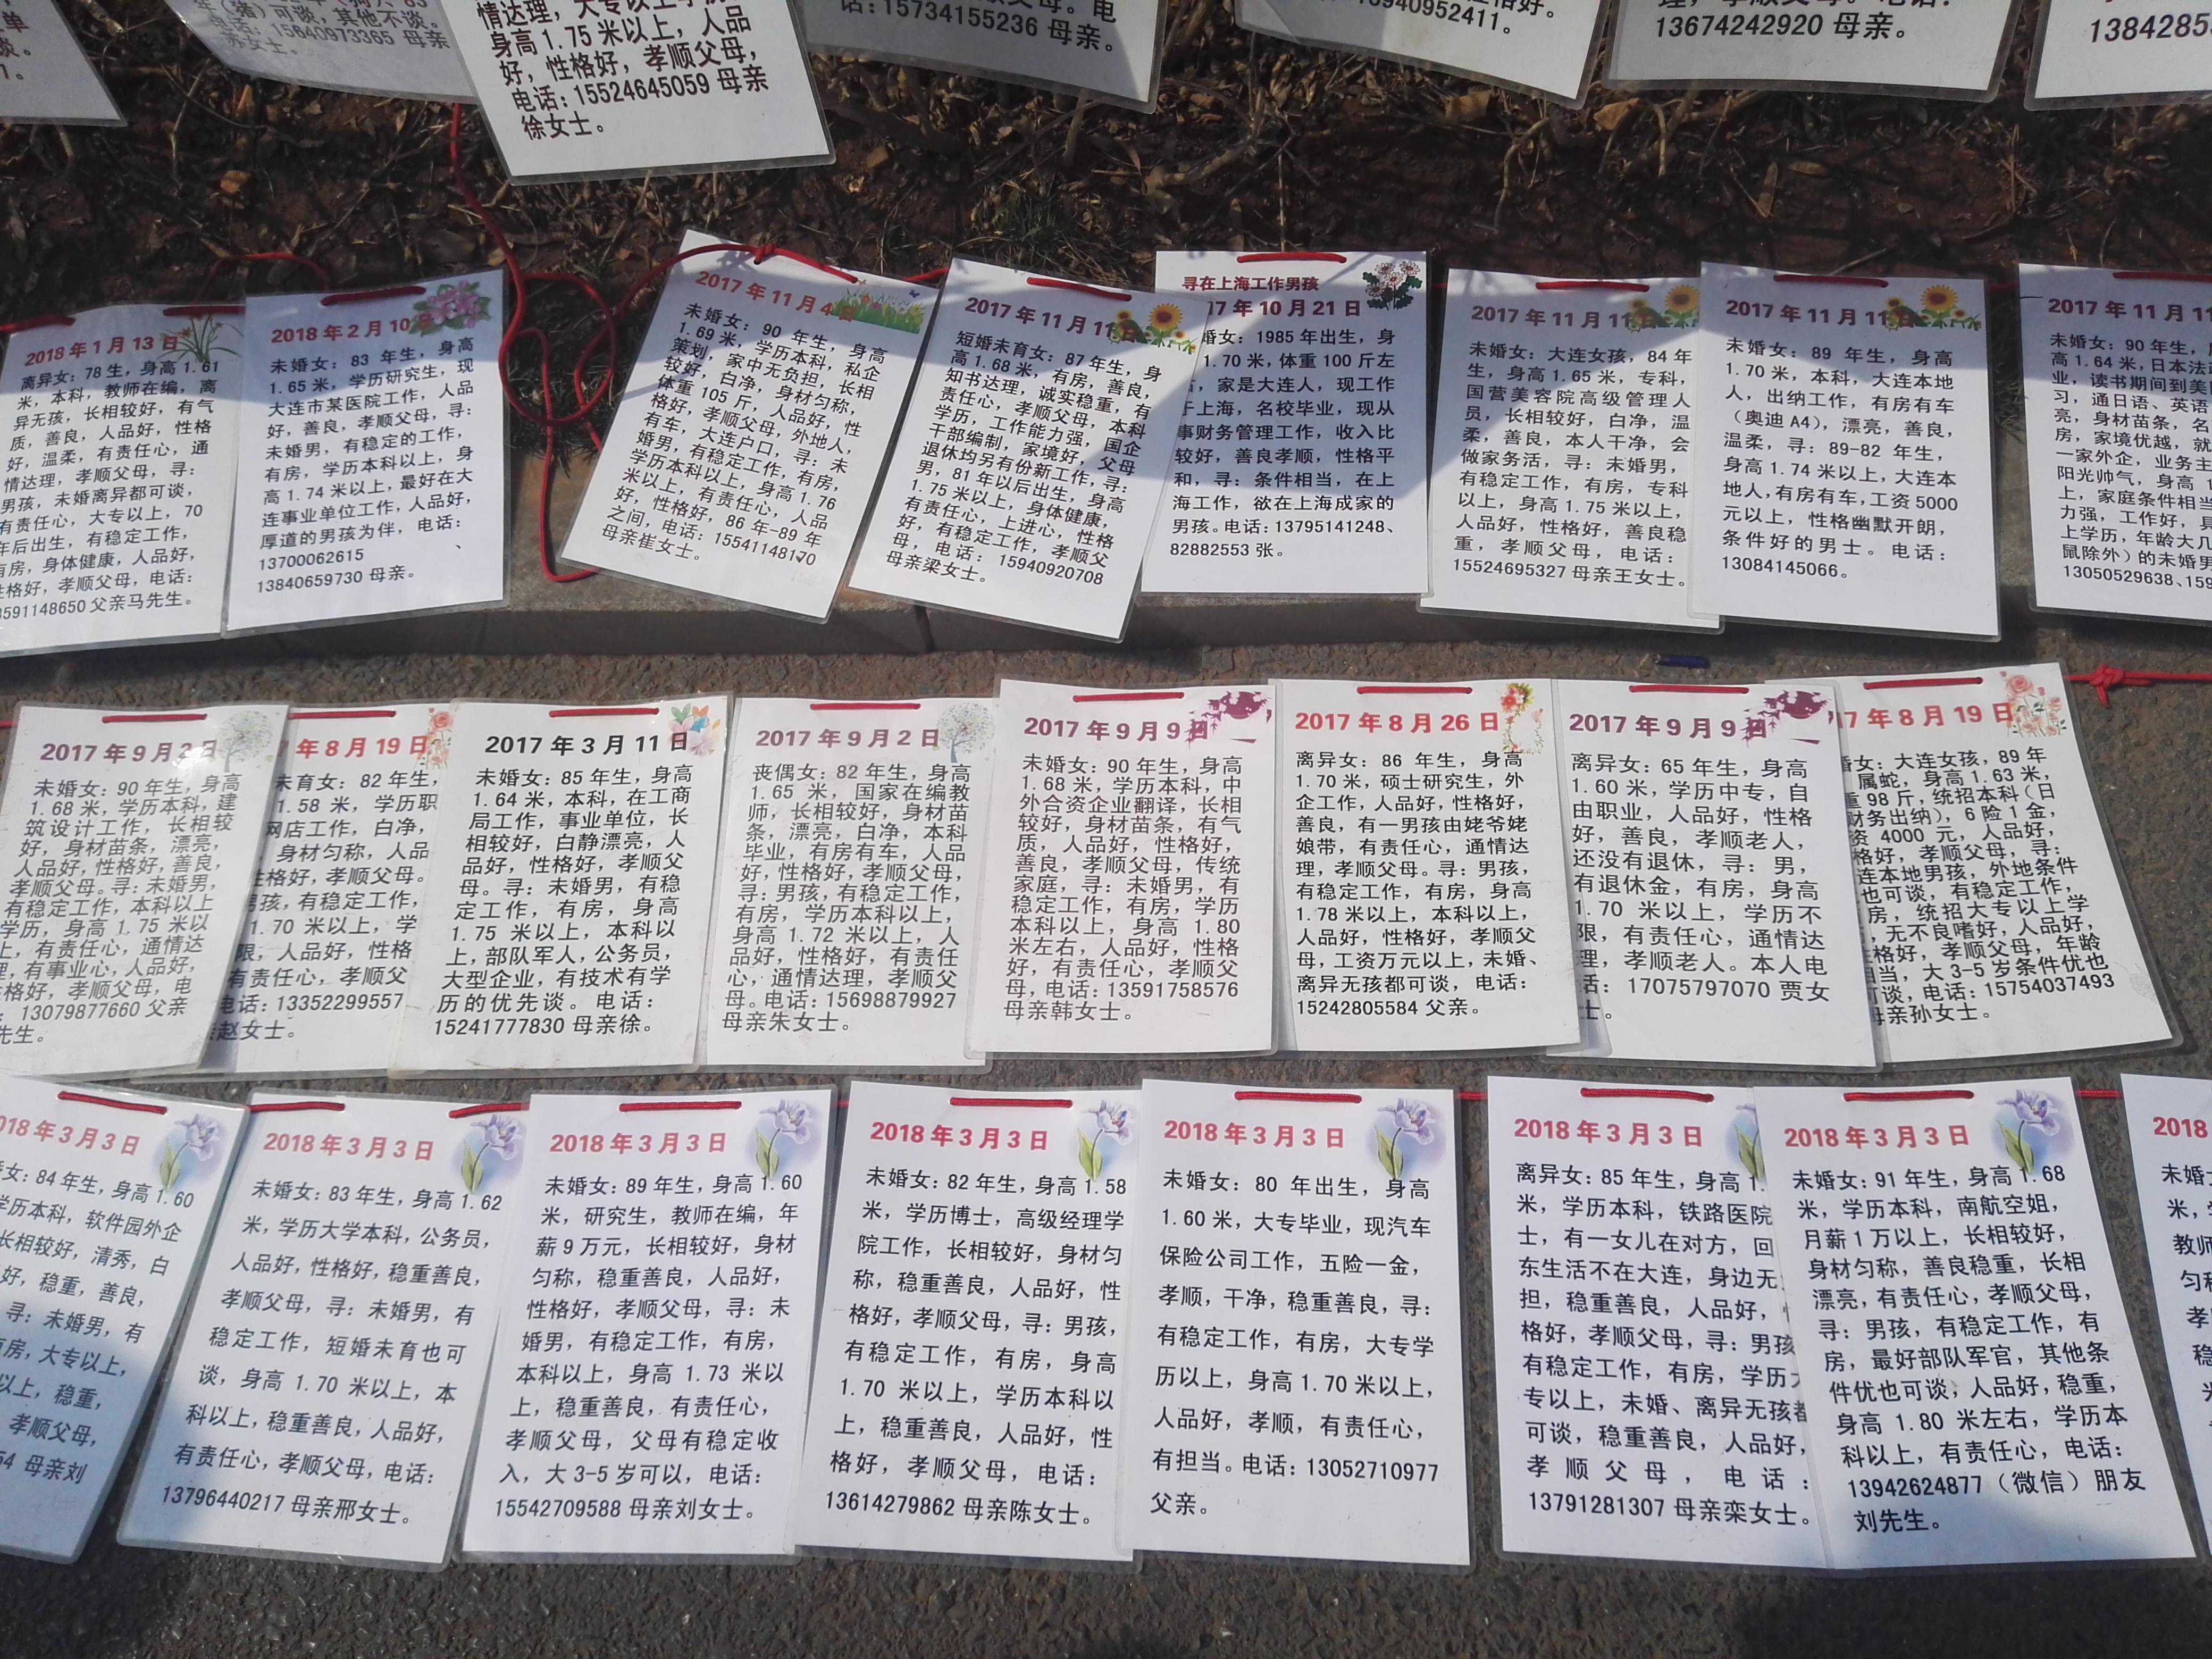 单
谈。
1。
年（猪）可谈，其他不谈。
电话：15640973365 母亲
苏女士。
身高 1.75 米以上，人品
好，性格好，孝顺父母，
电话：15524645059 母亲
徐女士。
话：15734155236 母亲。
13674242920 母亲。
2018 年 1 月 13 日
离异女：78 生，身高 1.61
米，本科，教师在编，离
异无孩，长相较好，有气
质，善良，人品好，性格
好，温柔，有责任心，通
情达理，孝顺父母，寻：
男孩，未婚离异都可谈，
有责任心，大专以上，70
年后出生，有稳定工作，
有房，身体健康，人品好，
性格好，孝顺父母，电话：
3591148650 父亲马先生。
2018 年 2 月 10
未婚女：83 年生，身高
1.65 米，学历研究生，现
大连市某医院工作，人品
好，善良，孝顺父母，寻：
未婚男，有稳定的工作，
有房，学历本科以上，身
高 1.74 米以上，最好在大
连事业单位工作，人品好，
厚道的男孩为伴，电话：
13700062615
13840659730 母亲。
2017 年 11 月 4 日
未婚女：90 年生，身高
1.69 米，学历本科，私企
策划，家中无负担，长相
较好，白净，身材匀称，
体重 105 斤，人品好，性
格好，孝顺父母，外地人，
有车，大连户口，寻：未
婚男，有稳定工作，有房，
学历本科以上，身高 1.76
米以上，有责任心，人品
好，性格好，86 年-89 年
之间，电话：15541148170
母亲崔女士。
2017 年 11 月 11
短婚未育女：87 年生，身
高 1.68 米，有房，善良，
知书达理，诚实稳重，有
责任心，孝顺父母，本科
学历，工作能力强，国企
干部编制，家境好，父母
退休均另有份新工作，寻：
男，81 年以后出生，身高
1.75 米以上，身体健康，
有责任心，上进心，性格
好，有稳定工作，孝顺父
母，电话：15940920708
母亲梁女士。
寻在上海工作男孩
17 年 10 月 21 日
婚女：1985 年出生，身
1.70 米，体重 100 斤左
，家是大连人，现工作
于上海，名校毕业，现从
事财务管理工作，收入比
较好，善良孝顺，性格平
和，寻：条件相当，在上
海工作，欲在上海成家的
男孩。电话：13795141248、
82882553 张。
2017 年 11 月 11
未婚女：大连女孩，84 年
生，身高 1.65 米，专科，
国营美容院高级管理人
员，长相较好，白净，温
柔，善良，本人干净，会
做家务活，寻：未婚男，
有稳定工作，有房，专科
以上，身高 1.75 米以上，
人品好，性格好，善良稳
重，孝顺父母，电话：
15524695327 母亲王女士。
2017 年 11 月 11
未婚女：89 年生，身高
1.70 米，本科，大连本地
人，出纳工作，有房有车
（奥迪 A4），漂亮，善良，
温柔，寻：89-82 年生，
身高 1.74 米以上，大连本
地人，有房有车，工资 5000
元以上，性格幽默开朗，
条件好的男士。电话：
13084145066。
2017 年 11 月 11
未婚女：90 年生，
高 1.64 米，日本法
业，读书期间到美
习，通日语、英语
亮，身材苗条，名
房，家境优越，就
一家外企，业务主
阳光帅气，身高 1
上，家庭条件相当
力强，工作好，具
上学历，年龄大几
鼠除外）的未婚男
13050529638、159
2017 年 9 月 2 日
未婚女：90 年生，身高
1.68 米，学历本科，建
筑设计工作，长相较
好，身材苗条，漂亮，
人品好，性格好，善良，
孝顺父母。寻：未婚男，
有稳定工作，本科以上
学历，身高 1.75 米以
上，有责任心，通情达
理，有事业心，人品好，
格好，孝顺父母，电
：13079877660 父亲
先生。
7 年 8 月 19 日
未育女：82 年生，
1.58 米，学历职
网店工作，白净，
，身材匀称，人品
性格好，孝顺父母。
男孩，有稳定工作，
1.70 米以上，学
限，人品好，性格
有责任心，孝顺父
电话：13352299557
亲赵女士。
2017 年 3 月 11 日
未婚女：85 年生，身高
1.64 米，本科，在工商
局工作，事业单位，长
相较好，白静漂亮，人
品好，性格好，孝顺父
母。寻：未婚男，有稳
定工作，有房，身高
1.75 米以上，本科以
上，部队军人，公务员，
大型企业，有技术有学
历的优先谈。电话：
15241777830 母亲徐。
2017 年 9 月 2 日
丧偶女：82 年生，身高
1.65 米，国家在编教
师，长相较好，身材苗
条，漂亮，白净，本科
毕业，有房有车，人品
好，性格好，孝顺父母，
寻：男孩，有稳定工作，
有房，学历本科以上，
身高 1.72 米以上，人
品好，性格好，有责任
心，通情达理，孝顺父
母。电话：15698879927
母亲朱女士。
2017 年 9 月 9 日
未婚女：90 年生，身高
1.68 米，学历本科，中
外合资企业翻译，长相
较好，身材苗条，有气
质，人品好，性格好，
善良，孝顺父母，传统
家庭，寻：未婚男，有
稳定工作，有房，学历
本科以上，身高 1.80
米左右，人品好，性格
好，有责任心，孝顺父
母，电话：13591758576
母亲韩女士。
2017 年 8 月 26 日
离异女：86 年生，身高
1.70 米，硕士研究生，外
企工作，人品好，性格好，
善良，有一男孩由姥爷姥
娘带，有责任心，通情达
理，孝顺父母。寻：男孩，
有稳定工作，有房，身高
1.78 米以上，本科以上，
人品好，性格好，孝顺父
母，工资万元以上，未婚、
离异无孩都可谈，电话：
15242805584 父亲。
2017 年 9 月 9 日
离异女：65 年生，身高
1.60 米，学历中专，自
由职业，人品好，性格
好，善良，孝顺老人，
还没有退休，寻：男，
有退休金，有房，身高
1.70 米以上，学历不
限，有责任心，通情达
理，孝顺老人。本人电
话：17075797070 贾女
士。
7 年 8 月 19 日
女：大连女孩，89 年
属蛇，身高 1.63 米，
重 98 斤，统招本科（日
财务出纳），6 险 1 金，
资 4000 元，人品好，
格好，孝顺父母，寻：
连本地男孩，外地条件
也可谈，有稳定工作，
房，统招大专以上学
，无不良嗜好，人品好，
性格好，孝顺父母，年龄
相当，大 3-5 岁条件优也
可谈，电话：15754037493
母亲孙女士。
018 年 3 月 3 日
女：84 年生，身高 1.60
学历本科，软件园外企
长相较好，清秀，白
好，稳重，善良，
寻：未婚男，有
房，大专以上，
以上，稳重，
孝顺父母，
54 母亲刘
2018 年 3 月 3 日
未婚女：83 年生，身高 1.62
米，学历大学本科，公务员，
人品好，性格好，稳重善良，
孝顺父母，寻：未婚男，有
稳定工作，短婚未育也可
谈，身高 1.70 米以上，本
科以上，稳重善良，人品好，
有责任心，孝顺父母，电话：
13796440217 母亲邢女士。
2018 年 3 月 3 日
未婚女：89 年生，身高 1.60
米，研究生，教师在编，年
薪 9 万元，长相较好，身材
匀称，稳重善良，人品好，
性格好，孝顺父母，寻：未
婚男，有稳定工作，有房，
本科以上，身高 1.73 米以
上，稳重善良，有责任心，
孝顺父母，父母有稳定收
入，大 3-5 岁可以，电话：
15542709588 母亲刘女士。
2018 年 3 月 3 日
未婚女：82 年生，身高 1.58
米，学历博士，高级经理学
院工作，长相较好，身材匀
称，稳重善良，人品好，性
格好，孝顺父母，寻：男孩，
有稳定工作，有房，身高
1.70 米以上，学历本科以
上，稳重善良，人品好，性
格好，孝顺父母，电话：
13614279862 母亲陈女士。
2018 年 3 月 3 日
未婚女：80 年出生，身高
1.60 米，大专毕业，现汽车
保险公司工作，五险一金，
孝顺，干净，稳重善良，寻：
有稳定工作，有房，大专学
历以上，身高 1.70 米以上，
人品好，孝顺，有责任心，
有担当。电话：13052710977
父亲。
2018 年 3 月 3 日
离异女：85 年生，身高 1.
米，学历本科，铁路医院
士，有一女儿在对方，回
东生活不在大连，身边无
担，稳重善良，人品好，
格好，孝顺父母，寻：男孩
有稳定工作，有房，学历
专以上，未婚、离异无孩都
可谈，稳重善良，人品好，
孝顺父母，电话：
13791281307 母亲栾女士。
2018 年 3 月 3 日
未婚女：91 年生，身高 1.68
米，学历本科，南航空姐，
月薪 1 万以上，长相较好，
身材匀称，善良稳重，长相
漂亮，有责任心，孝顺父母，
寻：男孩，有稳定工作，有
房，最好部队军官，其他条
件优也可谈，人品好，稳重，
身高 1.80 米左右，学历本
科以上，有责任心，电话：
13942624877（微信）朋友
刘先生。
2018
未婚
米，
教师
匀称
孝
稳